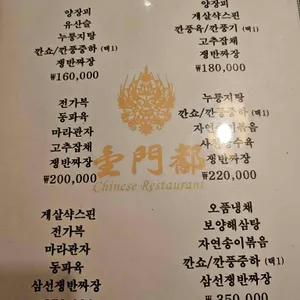 양장피
유산슬
누룽지탕
깐쇼/깐풍중하 (택1)
쟁반짜장
₩160,000
양장피
게살샥스핀
깐풍육/깐풍기 (택1)
고추잡채
쟁반짜장
₩180,000
전가복
동파육
마라관자
고추잡채
쟁반짜장
₩200,000
누룽지탕
깐쇼/깐풍중하 (택1)
자연송이볶음
쟁반짜장
₩220,000
門都
Chinese Restaurant
게살샥스핀
전가복
마라관자
동파육
삼선쟁반짜장
오품냉채
보양해삼탕
자연송이볶음
깐쇼/깐풍중하 (택1)
삼선쟁반짜장
₩350,000